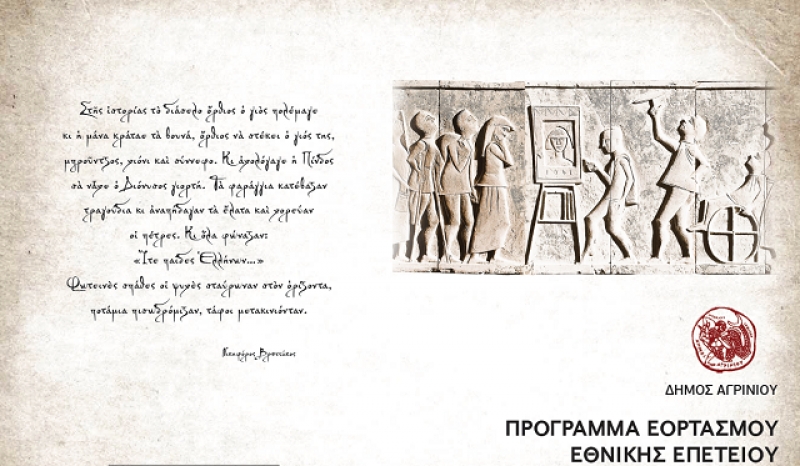 Στῆς ἱστορίας τὸ διάσελο ὄρθιος ὁ γιὸς πολέμαγε
κι ἡ μάνα κράταε τὰ βουνά, ὄρθιος νὰ στέκει ὁ γιός της,
μπροῦντζος, χιόνι καὶ σύννεφο. Κι ἀχολόγαγε ἡ Πίνδος
σὰ νἆχε ὁ Διόνυσος γιορτή. Τὰ φαράγγια κατέβαζαν
τραγούδια κι ἀναπήδαγαν τὰ ἔλατα καὶ χορεύαν
οἱ πέτρες. Κι ὅλα φώναζαν:
«Ἴτε παῖδες Ἑλλήνων...»
Φωτεινὲς σπάθες οἱ ψυχὲς σταύρωναν στὸν ὁρίζοντα,
ποτάμια πισωδρόμιζαν, τάφοι μετακινιόνταν.
Νικηφόρος Βρεττάκος
1941
ΔΗΜΟΣ ΑΓΡΙΝΙΟΥ
ΠΡΟΓΡΑΜΜΑ ΕΟΡΤΑΣΜΟΥ
ΕΘΝΙΚΗΣ ΕΠΕΤΕΙΟΥ